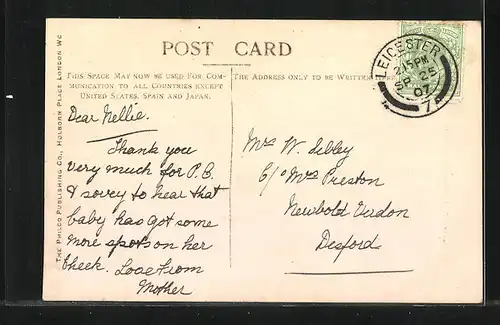 POST CARD
THIS SPACE MAY NOW BE USED FOR COM-
MUNICATION TO ALL COUNTRIES EXCEPT
UNITED STATES, SPAIN AND JAPAN.
THE ADDRESS ONLY TO BE WRITTEN
LEICESTER
2.15PM
SP 25
07
7
THE PHILCO PUBLISHING CO., HOLBORN PLACE LONDON WC
Dear Nellie.
Thank you
very much for P.C
& sorry to hear that
baby has got some
more spots on her
cheek. Love from
Mother
Mrs W.
C/o Mrs Preston
Newbold Verdon
Desford